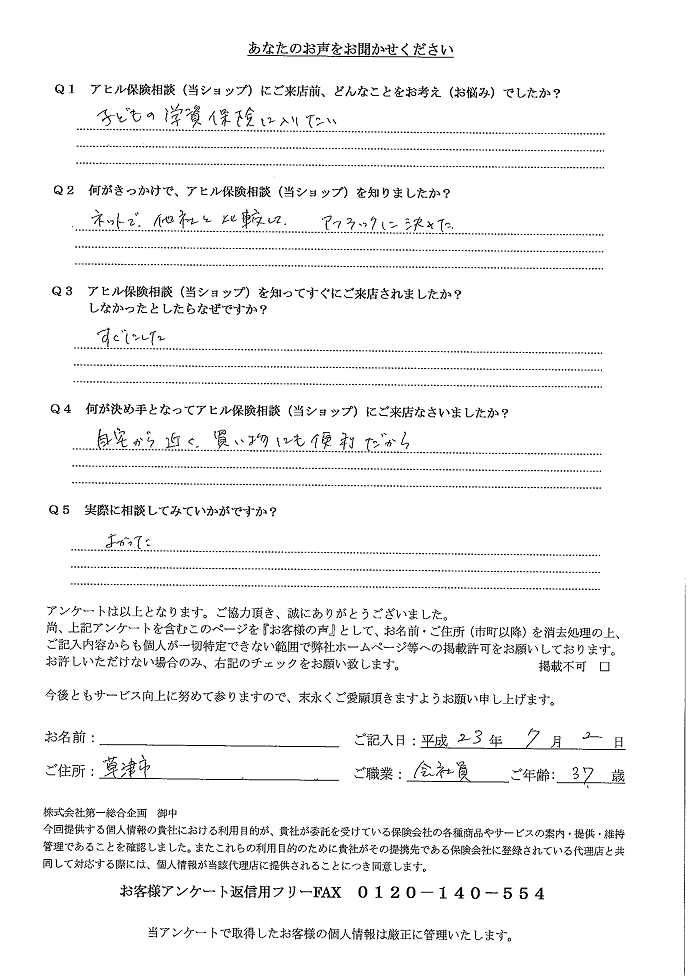 あなたのお声をお聞かせください
Q1 アヒル保険相談（当ショップ）にご来店前、どんなことをお考え（お悩み）でしたか？
子どもの学資保険に入りたい
Q2 何がきっかけで、アヒル保険相談（当ショップ）を知りましたか？
ネットで、他社と比較して、 アフラックに決めた
Q3 アヒル保険相談（当ショップ）を知ってすぐにご来店されましたか？
しなかったとしたらなぜですか？
すぐにした
Q4 何が決め手となってアヒル保険相談（当ショップ）にご来店なさいましたか？
自宅から近く、買い物にも便利だから
Q5 実際に相談してみていかがですか？
よかった
アンケートは以上となります。ご協力頂き、誠にありがとうございました。
尚、上記アンケートを含むこのページを『お客様の声』として、お名前・ご住所（市町以降）を消去処理の上、
ご記入内容からも個人が一切特定できない範囲で弊社ホームページ等への掲載許可をお願いしております。
お許しいただけない場合のみ、右記のチェックをお願い致します。 掲載不可 □
今後ともサービス向上に努めて参りますので、末永くご愛顧頂きますようお願い申し上げます。
お名前： ご記入日：平成 23 年 7 月 2 日
ご住所： 草津市 ご職業： 会社員 ご年齢： 37 歳
株式会社第一総合企画 御中
今回提供する個人情報の貴社における利用目的が、貴社が委託を受けている保険会社の各種商品やサービスの案内・提供・維持
管理であることを確認しました。またこれらの利用目的のために貴社がその提携先である保険会社に登録されている代理店と共
同して対応する際には、個人情報が当該代理店に提供されることにつき同意します。
お客様アンケート返信用フリーFAX 0120－140－554
当アンケートで取得したお客様の個人情報は厳正に管理いたします。